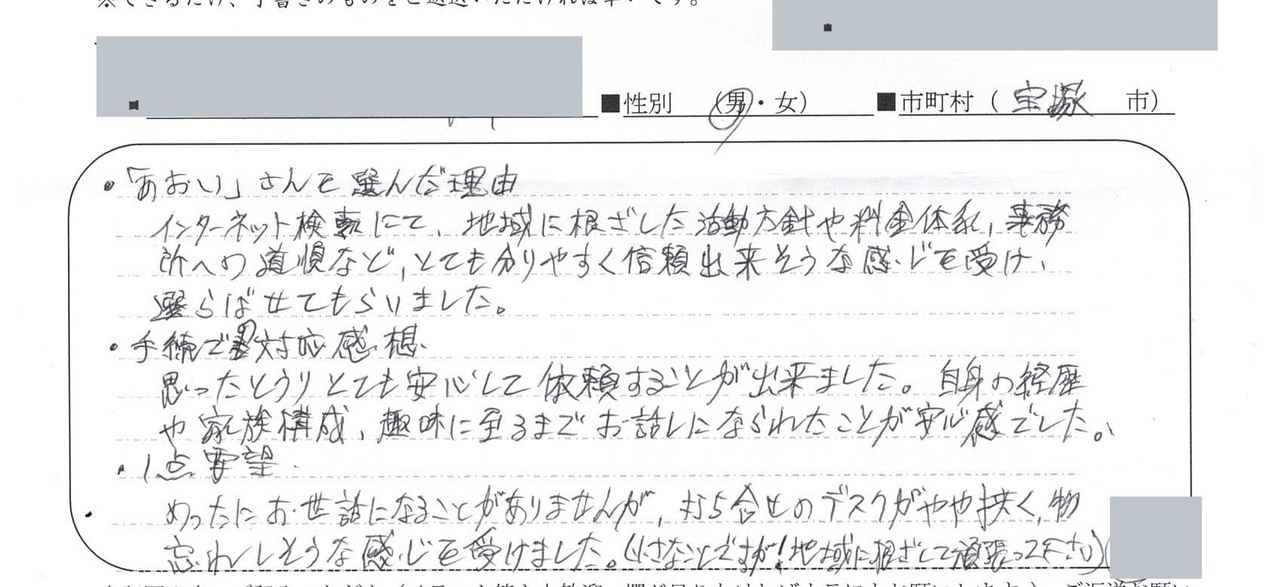 ※できるだけ、手書きのものをご返送いただければ幸いです。
■性別 (男・女) ■市町村 ( 宝塚 市)
・「あおい」さんを選んだ理由
インターネット検索にて、地域に根ざした活動方針や料金体系、事務
所への道順など、とても分りやすく信頼出来そうな感じを受け、
選らばせてもらいました。
・手続での対応感想
思ったとうりとても安心して依頼することが出来ました。自身の経歴
や家族構成、趣味に至るまでお話しになられたことが安心感でした。
・1点要望
めったにお世話になることがありませんが、打ち合せのデスクがやや狭く、物
忘れしそうな感じを受けました。(小さなことですが!地域に根ざして頑張って下さい)